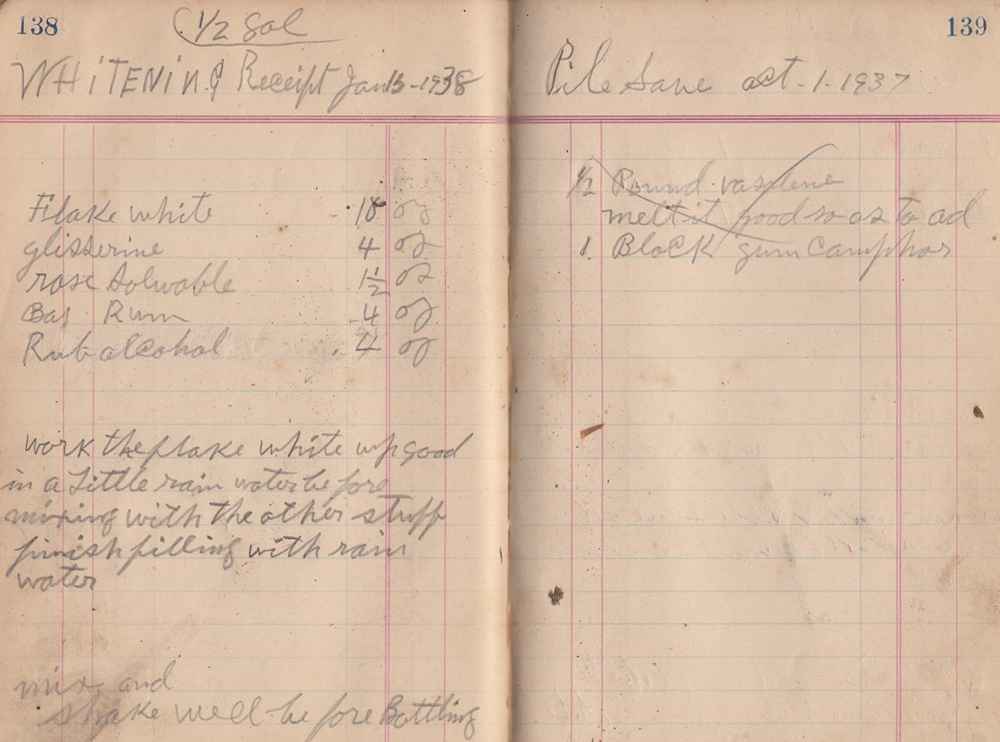 138
1/2 Gal
WHiTENiNG Receipt Jan 13-1938
Flake white 18 oz
glisserine 4 oz
rose Solwable 1 1/2 oz
Bay Rum 4 oz
Rub alcohal 4 oz
work the flake white up good
in a Little rain water before
mixing with the other stuff
finish filling with rain
water
mix and
shake well before Bottling
139
Pile Salve oct-1-1937
1/2 Pound vasylene
melt it good so as to ad
1 Block gum Camphor